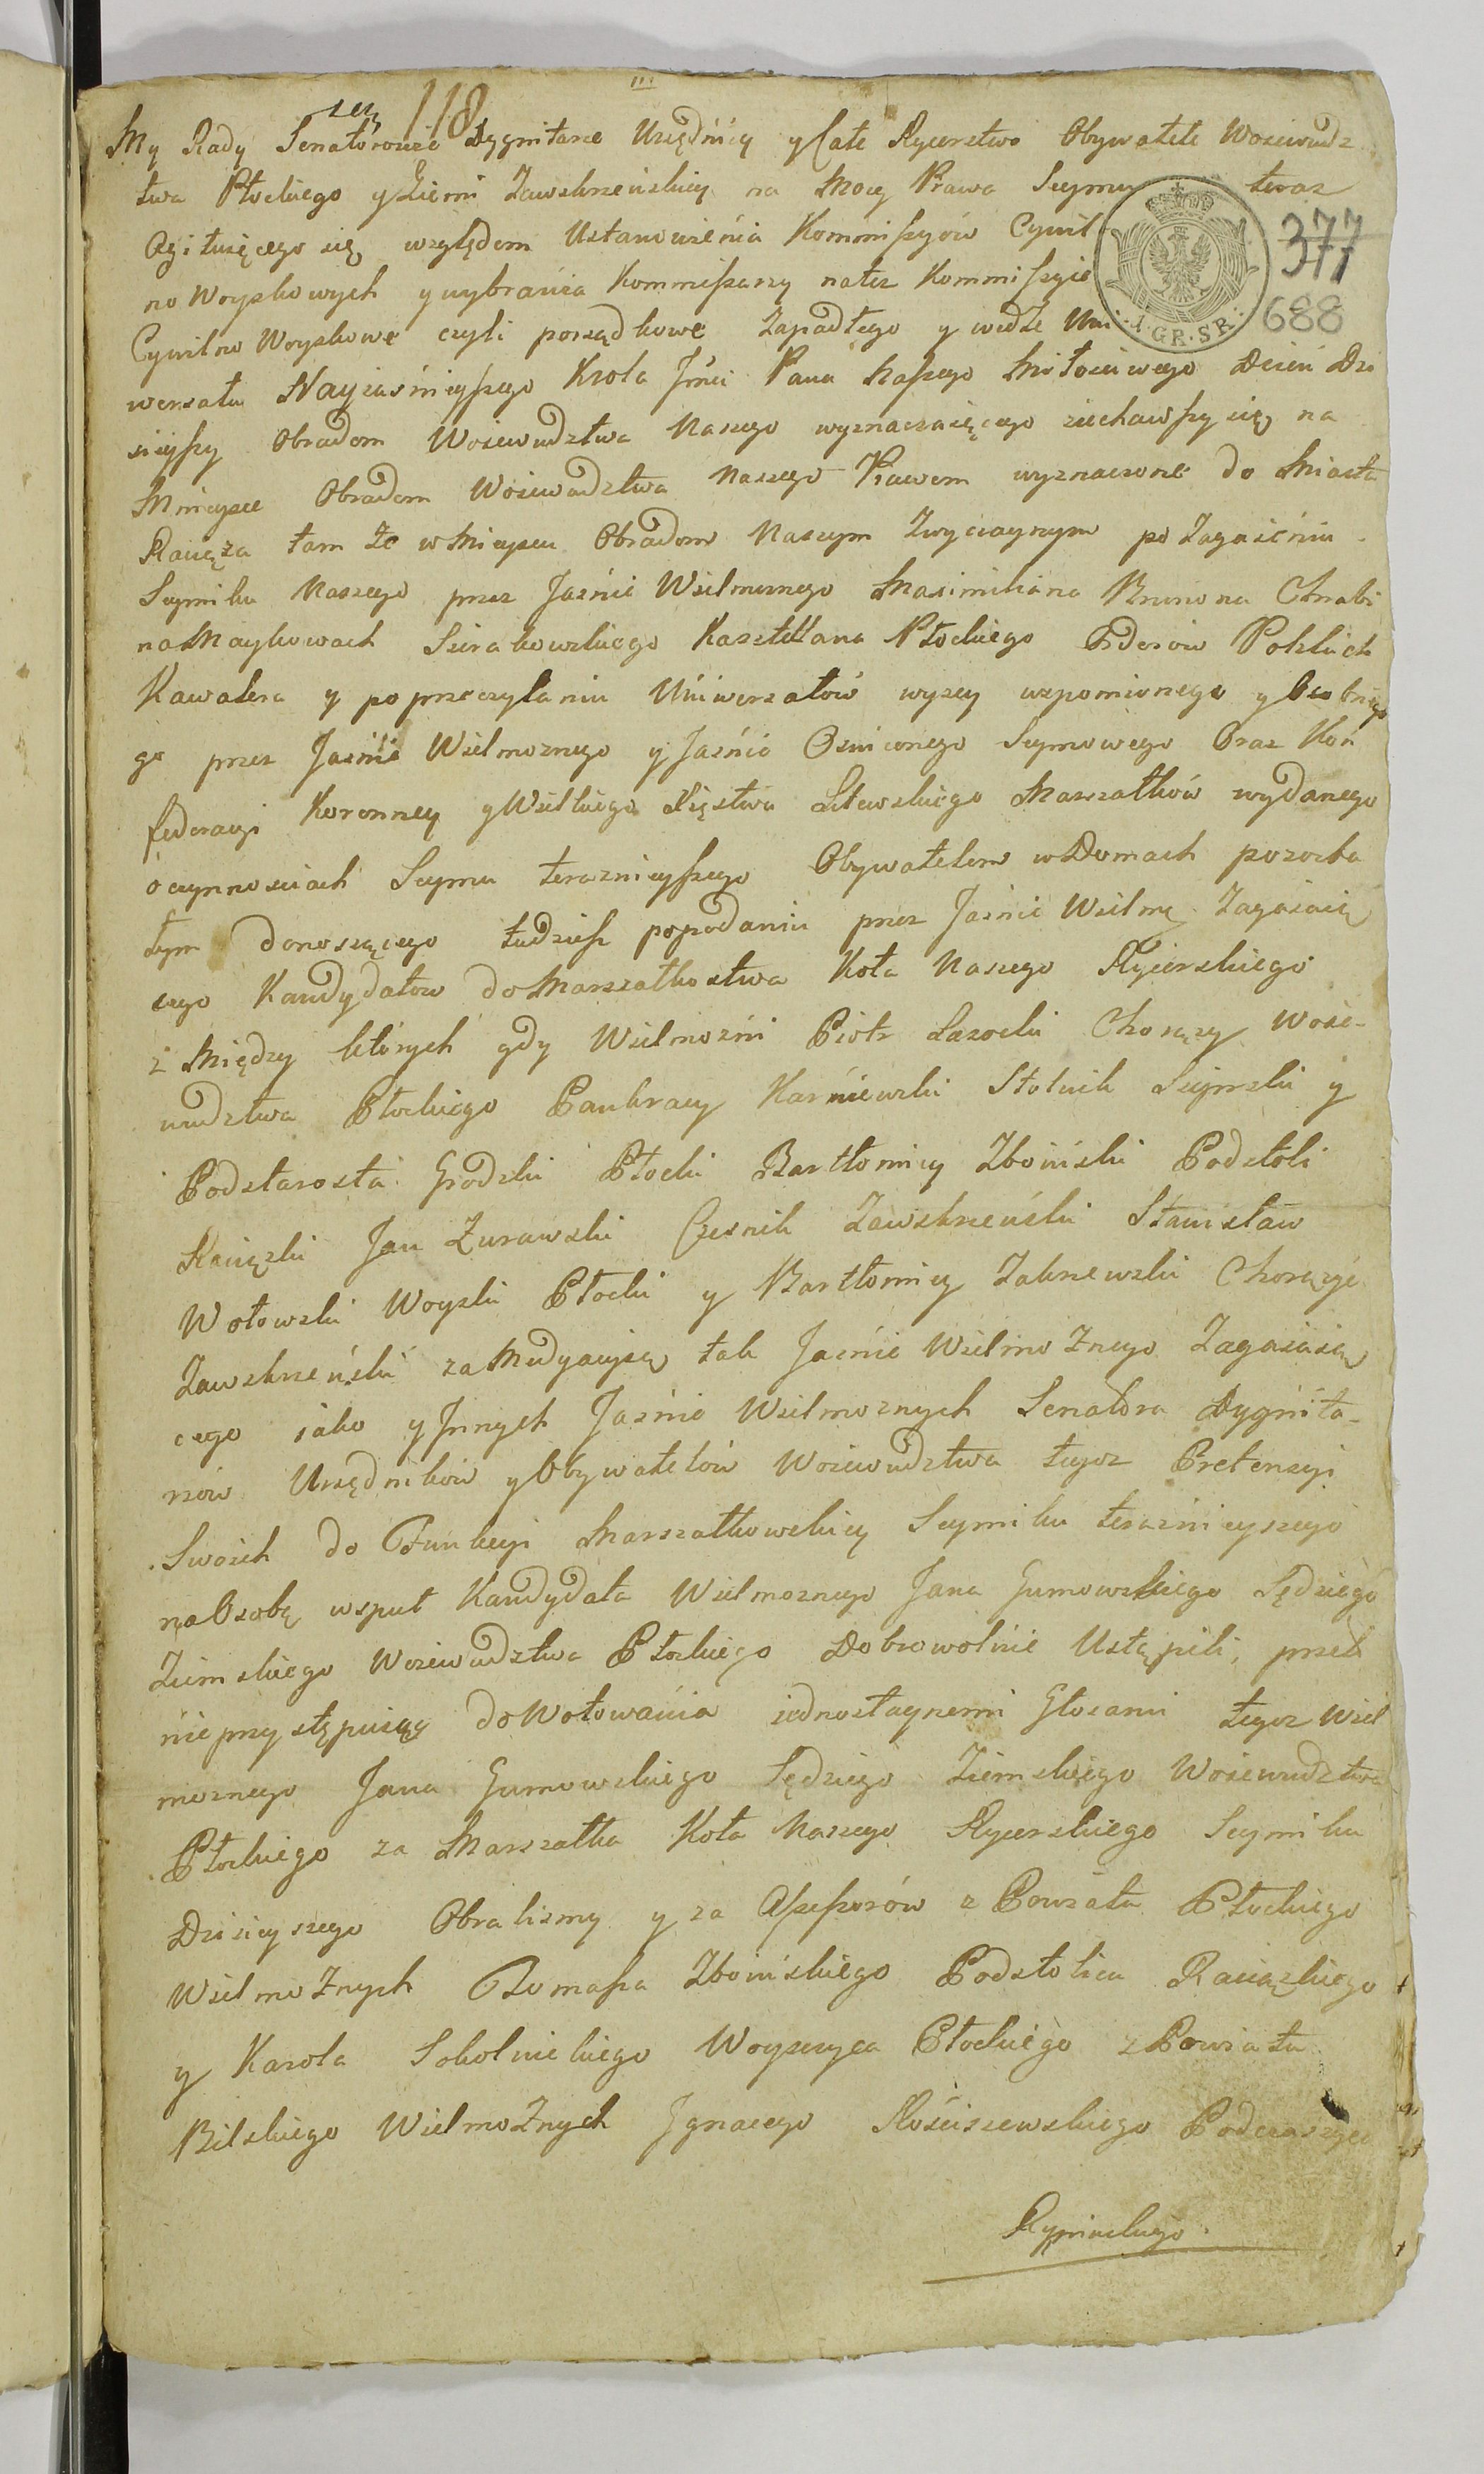 118
My Rady Senatorowie Dygnitarze Urzędnicy y Całe Rycerstwo Obywatele Woiewudz
twa Płockiego y Ziemi Zawskrzeńskiey na Mocy Prawa Seymu teraz
Agituiącego się względem Ustanowienia Kommißyów Cywil
377
no Woyskowych y wybrania Kommißarzy na też Kommißyie
688
Cywilno Woyskowe czyli porządkowe Zapadłego y wedle Uni
J.GR.SR.
wersału Nayiaśnieyßego Krola Jmci Pana Naßego Miłościwego Dzień Dzi
sieyßy Obradom Woiewudztwa Naszego wyznaczaiącego ziechawßy się na
Mieysce Obradom Woiewudztwa Naszego Prawem wyznaczone do Miasta
Raciąża tam że w Mieyscu Obradom Naszym Zwyczaynym po Zagaieniu
Seymiku Naszego przez Jaśnie Wielmoznego Maximiliana Brunona Chrabi
na Maykowach Sierakowskiego Kasztellana Płockiego Orderów Polskich
Kawalera y po przeczytaniu Uniwersałów wyzey wspomionego y Osobne
go przez Jaśnie Wielmoznego y Jaśnie Oswieconego Seymowego Oraz Kon
federacyi Koronney y Wielkiego Xięstwa Litewskiego Marszałków wydanego
o czynnosciach Seymu teraznieyßego Obywatelom w Domach pozosta
łym donoszącego tudzież po podaniu przez Jaśnie Wielmę Zagaiaią
cego Kandydatow do Marszałkostwa Koła Naszego Rycerskiego
z Między których gdy Wielmożni Piotr Lasocki Chorąży Woie-
wudztwa Płockiego Pankracy Karniewski Stolnik Sierpski y
Podstarosta Grodzki Płocki Bartłomiey Zboiński Podstoli
Raciązki Jan Żurawski Czesnik Zawskrzeński Stanisław
Wołowski Woyski Płocki y Bartłomiey Zakrzewski Chorąży
Zawskrzeński za Medyacyią tak Jaśnie Wielmożnego Zagaiaią
cego iako y Innych Jaśnie Wielmoznych Senatora Dygnita-
rzow Urzędnikow y Obywatelów Woiewudztwa tegoz Pretensyi
Swoich do Funkcyi Marszałkowskiey Seymiku teraznieyszego
na Osobę wsput Kandydata Wielmoznego Jana Gumowskiego Sędziego
Ziemskiego Woiewudztwa Płockiego Dobrowolnie Ustąpili, przeto
nieprzystępuiąc do Wotowania iednostaynemi Głosami tegoz Wiel
moznego Jana Gumowskiego Sędziego Ziemskiego Woiewudztwa
Płockiego za Marszałka Koła Naszego Rycerskiego Seymiku
Dzisieyszego Obralismy y za Aßeßorów z Powiatu Płockiego
Wielmożnych Tomaßa Zboińskiego Podstolica Raciązkiego
y Karola Sokolnickiego Woyszyca Płockiego z Powiatu
Bilskiego Wielmożnych Ignacego Rościszewskiego Podczaszyca
Rypinskiego.